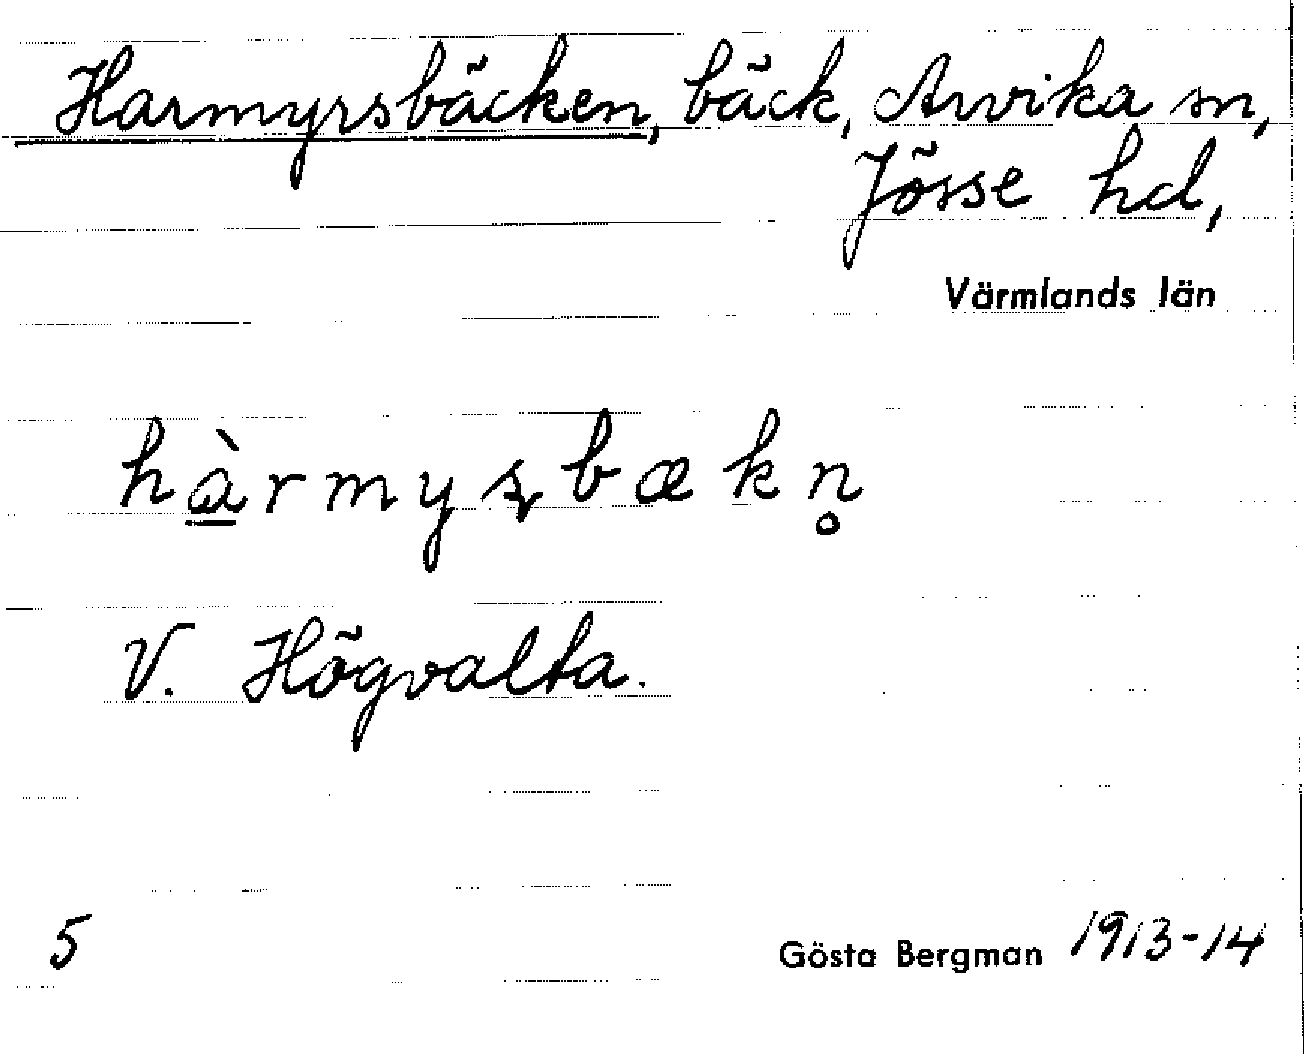 Harmyrsbäcken, bäck, Arvika sn,
Jösse hd,
Värmlands län
hà̲rmyʂbækn̥
V. Högvalta.
5
Gösta Bergman 1913-14